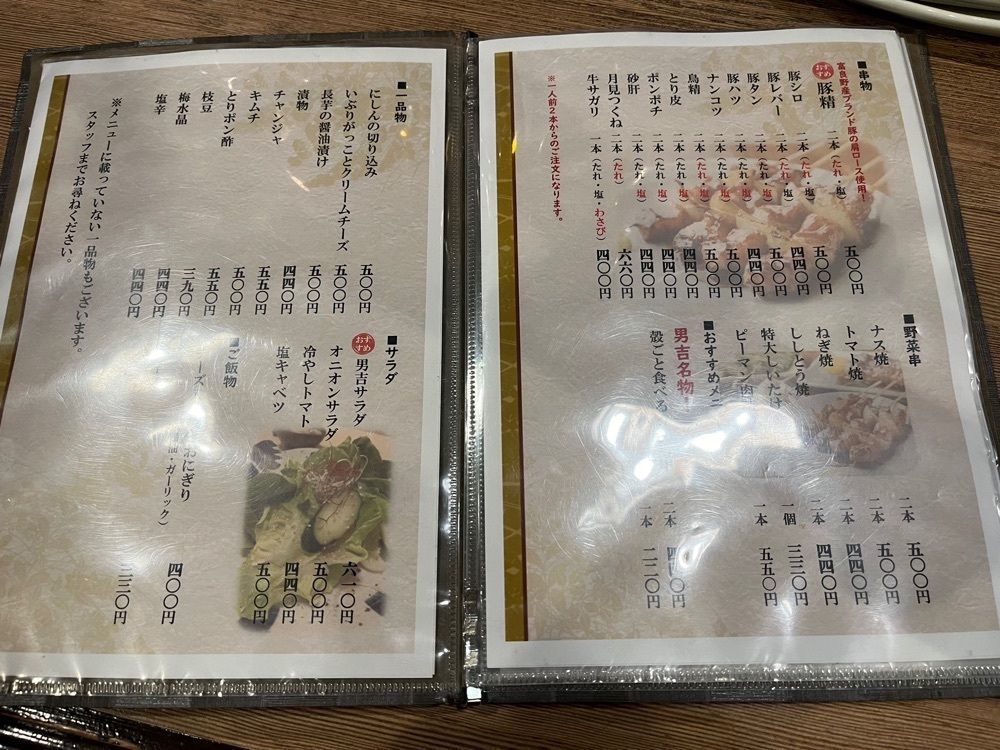 ■串物
富良野産ブランド豚の肩ロース使用！
おすすめ 豚精 二本(たれ・塩) 五〇〇円
豚シロ 二本(たれ・塩) 五〇〇円
豚レバー 二本(たれ・塩) 四四〇円
豚タン 二本(たれ・塩) 五〇〇円
豚ハツ 二本(たれ・塩) 四四〇円
ナンコツ 二本(たれ・塩) 五〇〇円
鳥精 二本(たれ・塩) 五〇〇円
とり皮 二本(たれ・塩) 四四〇円
ボンボチ 二本(たれ・塩) 四四〇円
砂肝 二本(たれ・塩) 四四〇円
月見つくね 二本(たれ) 六六〇円
牛サガリ 二本(たれ・塩・わさび) 四〇〇円
※一人前2本からのご注文になります。
■野菜串
ナス焼 二本 五〇〇円
トマト焼 二本 五〇〇円
ねぎ焼 二本 四四〇円
ししとう焼 二本 四四〇円
特大しいたけ 一個 三三〇円
ピーマン肉 一本 五五〇円
■おすすめメニ
男吉名物！ 二本 四四〇円
殻ごと食べる 一本 二二〇円
■一品物
にしんの切り込み 五〇〇円
いぶりがっことクリームチーズ 五〇〇円
長芋の醤油漬け 五〇〇円
漬物 四四〇円
チャンジャ 五五〇円
キムチ 五〇〇円
とりポン酢 五五〇円
枝豆 三九〇円
梅水晶 四四〇円
塩辛 四四〇円
※メニューに載っていない一品物もございます。
スタッフまでお尋ねください。
■サラダ
おすすめ 男吉サラダ 六一〇円
オニオンサラダ 五〇〇円
冷やしトマト 四四〇円
塩キャベツ 五〇〇円
■ご飯物
ーズ おにぎり 四〇〇円
油・ガーリック) 三三〇円